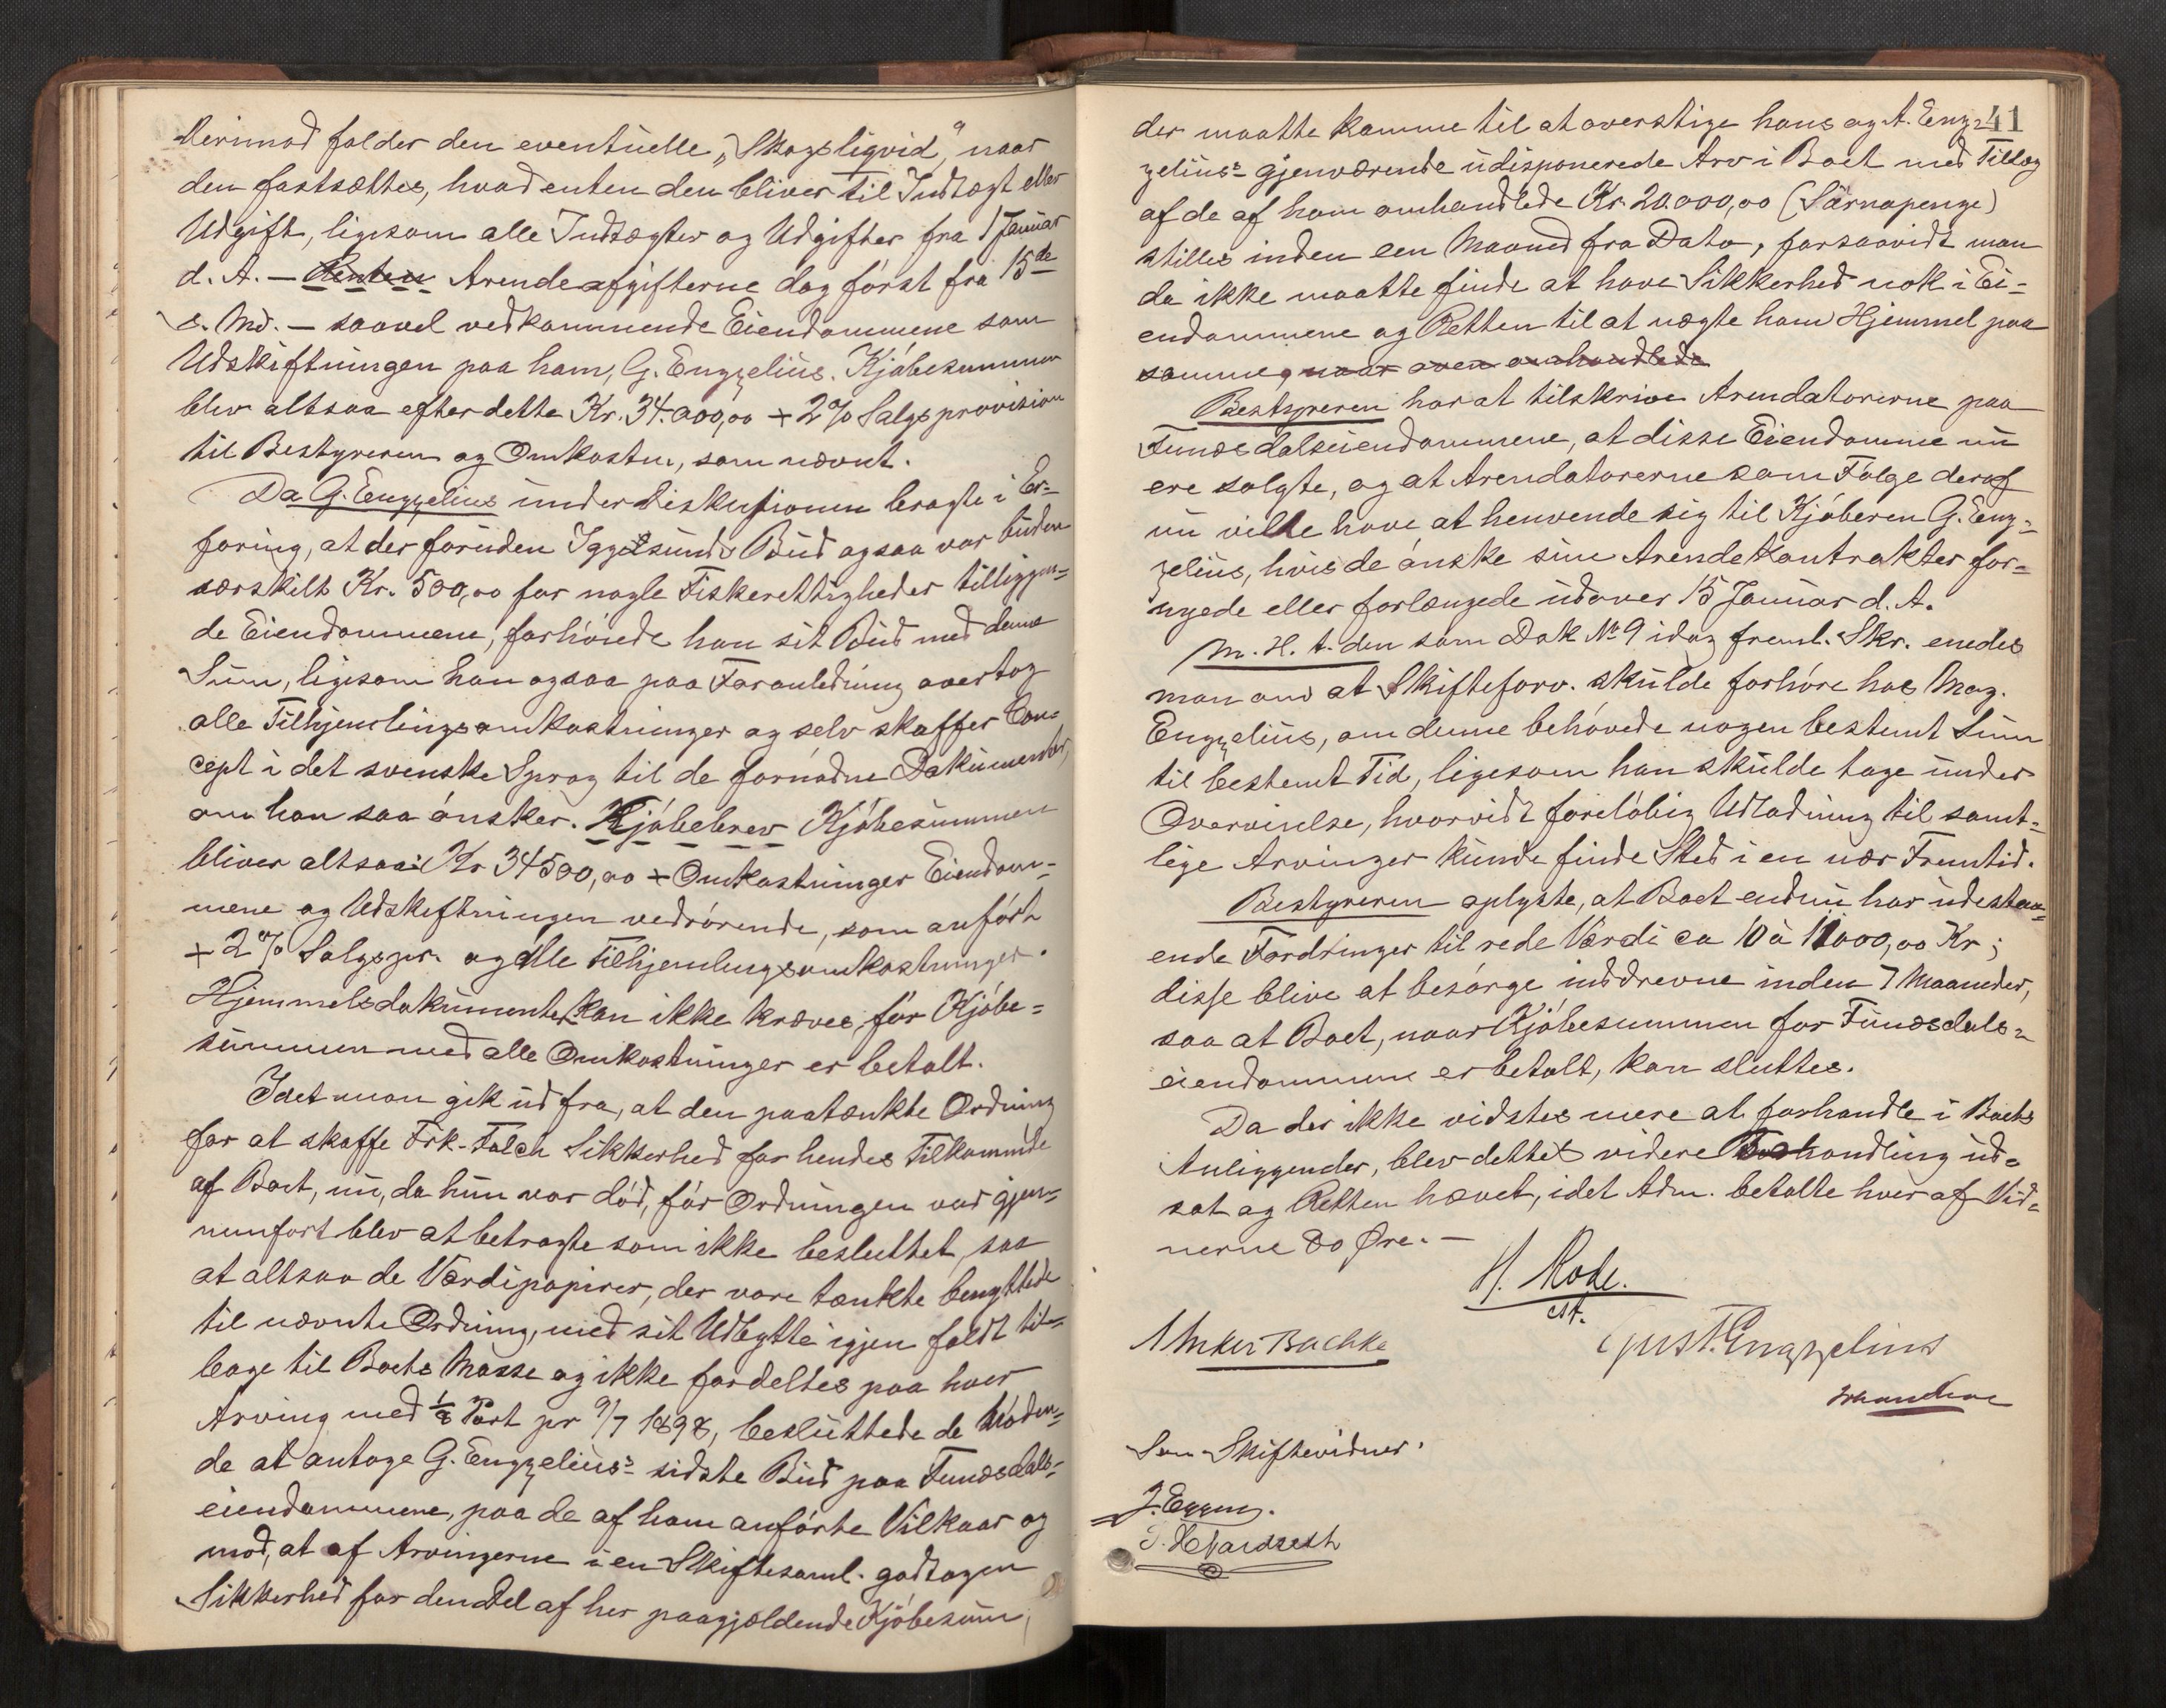 derimod falder den eventuelle „Skogsliqvid“, naar
den fastsættes, hvad enten den bliver til Indtægt eller
Udgift, ligesom alle Indtægter og Udgifter fra 1 Januar
d. A. — Renten Arendeafgifterne dog først fra 15de
s. Md. — saavel vedkommende Eiendommene som
Udskiftningen paa ham, G. Engzelius. Kjøbesummen
blev altsaa efter dette Kr. 34.000,00 + 2% Salgsprovision
til Bestyreren og Omkostn., som nævnt.
Da G. Engzelius under Diskusionen bragte i Er-
faring, at der foruden Iggesunds Bud ogsaa var buden
særskilt Kr. 500,00 for nogle Fiskerettigheder tilliggen-
de Eiendommene, forhøiede han sit Bud med denne
Sum, ligesom han ogsaa paa Foranledning overtog
alle Tilhjemlingsomkostninger og selv skaffer Con-
cept i det svenske Sprog til de fornødne Dokumenter,
om han saa ønsker. Kjøbebrev Kjøbesummen
bliver altsaa: Kr 34500,00 + Omkostninger Eiendom-
mene og Udskiftningen vedrørende, som anført
+ 2% Salgspr. og alle Tilhjemlingsomkostninger.
Hjemmelsdokumenter kan ikke kræves, før Kjøbe-
summen med alle Omkostninger er betalt.
Idet man gik ud fra, at den paatænkte Ordning
for at skaffe Frk. Falch Sikkerhed for hendes Tilkommende
af Boet, nu, da hun var død, før Ordningen var gjen-
nemført blev at betragte som ikke besluttet, saa
at altsaa de Værdipapirer, der vare tænkte benyttede
til nævnte Ordning, med sit Udbytte igjen faldt til-
bage til Boets Masse og ikke fordeltes paa hver
Arving med 1/8 Part pr 9/7 1898, besluttede de Møden-
de at antage G. Engzelius's sidste Bud paa Funæsdals-
eiendommene, paa de af ham anførte Vilkaar og
mod, at af Arvingerne i en Skiftesaml. godtagen
Sikkerhed for den Del af her paagjældende Kjøbesum,
41
der maatte komme til at overstige hans og A. Eng-
zelius's gjenværende udisponerede Arv i Boet med Tillæg
af de af ham omhandlede Kr. 20.000,00 (Särnapenge)
stilles inden een Maaned fra Dato, forsaavidt man
da ikke maatte finde at have Sikkerhed nok i Ei-
endommene og Retten til at nægte ham Hjemmel paa
samme, naar oven omhandlede
Bestyreren har at tilskrive Arendatorerne paa
Funæsdalseiendommene, at disse Eiendomme nu
ere solgte, og at Arendatorerne som Følge deraf
nu ville have at henvende sig til Kjøberen G. Eng-
zelius, hvis de ønske sine Arendekontrakter for-
nyede eller forlængede udover 15 Januar d. A.
M. H. t. den som Dok № 9 idag freml. Skr. enedes
man om at Skifteforv. skulde forhøre hos Mag.
Engzelius, om denne behøvede nogen bestemt Sum
til bestemt Tid, ligesom han skulde tage under
Overveielse, hvorvidt foreløbig Udlodning til samt-
lige Arvinger kunde finde Sted i en nær Fremtid.
Bestyreren oplyste, at Boet endnu har udestaa-
ende Fordringer til rede Værdi ca 10 à 11000,00 Kr;
disse blive at besørge inddrevne inden 7 Maaneder,
saa at Boet, naar Kjøbesummen for Funæsdals-
eiendommene er betalt, kan sluttes.
Da der ikke vidstes mere at forhandle i Boets
Anliggender, blev dettes videre Behandling ud-
sat og Retten hævet, idet Adm. betalte hver af Vid-
nerne 80 Øre. —
H. Rode.
cst.
Anker Bachke
Gust. Engzelius
Som Skiftevidner:
J. Eggen.